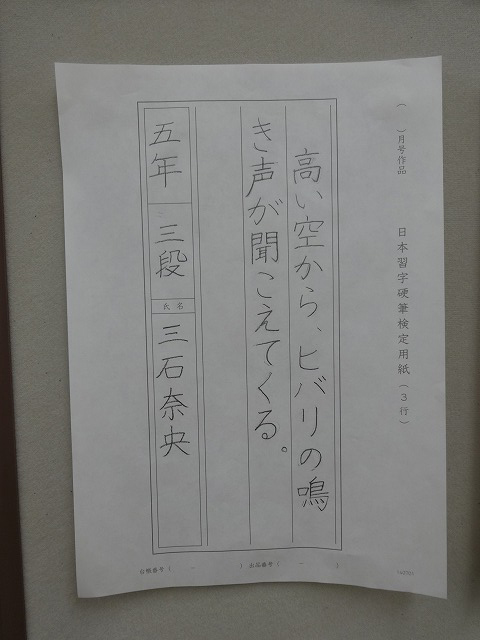 （　　）月号作品
日本習字硬筆検定用紙（３行）
高い空から、ヒバリの鳴
き声が聞こえてくる。
五年 三段 氏名 三石奈央
台帳番号（　－　） 出品番号（　－　）